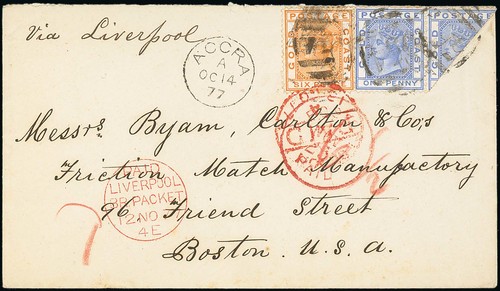 Via Liverpool
ACCRA
A
OC 14
77
POSTAGE POSTAGE POSTAGE
GOLD COAST
ONE PENNY
Messrs Byam, Carlton & Co's
Friction Match Manufactory
96, Friend Street
Boston. U.S.A.
PAID
LIVERPOOL
BR. PACKET
12 NO
4E
PAID